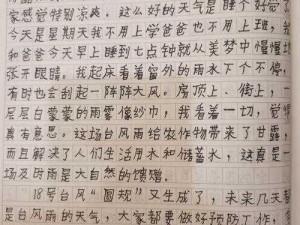 家感觉特别凉爽。这么好的天气是睡个好觉了
今天是星期天我不用上学爸爸也不用上班，我
和爸爸今天早上睡到七点钟就从美梦中慢慢地
张开眼睛。我起床看着窗外的雨水下个不停，
有时也会刮起一阵阵大风。房顶上、街上，一
层层白蒙蒙的雨雾像纱巾，我看着一切，觉得
真有意思。这场台风雨给农作物带来了甘露，
而且解决了人们生活用水和储蓄水，这真是一
场及时雨是大自然的馈赠。
18号台风"圆规"又生成了，未来几天都
是台风雨的天气，大家都要做好预防工作，